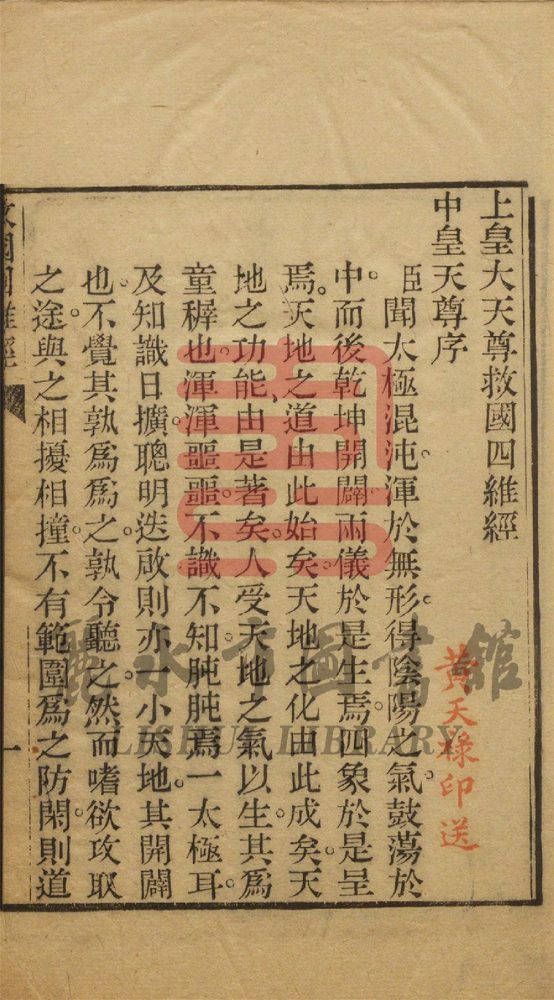 上皇大天尊救國四維經
中皇天尊序
臣聞太極混沌。渾於無形。得陰陽之氣。鼓蕩於
中。而後乾坤開闢。兩儀於是生焉。四象於是呈
焉。天地之道由此始矣。天地之化由此成矣。天
地之功能、由是著矣。人受天地之氣以生。其為
童穉也。渾渾噩噩。不識不知。肫肫焉一太極耳。
及知識日擴。聰明迭啟。則亦一小天地。其開闢
也。不覺其孰爲爲之。孰令聽之。然而嗜欲攻取
之途。與之相擾相撞。不有範圍爲之防閑。則道
救國四維經
一
黃天祿印送
麗水市圖書館
LISHUI LIBRARY